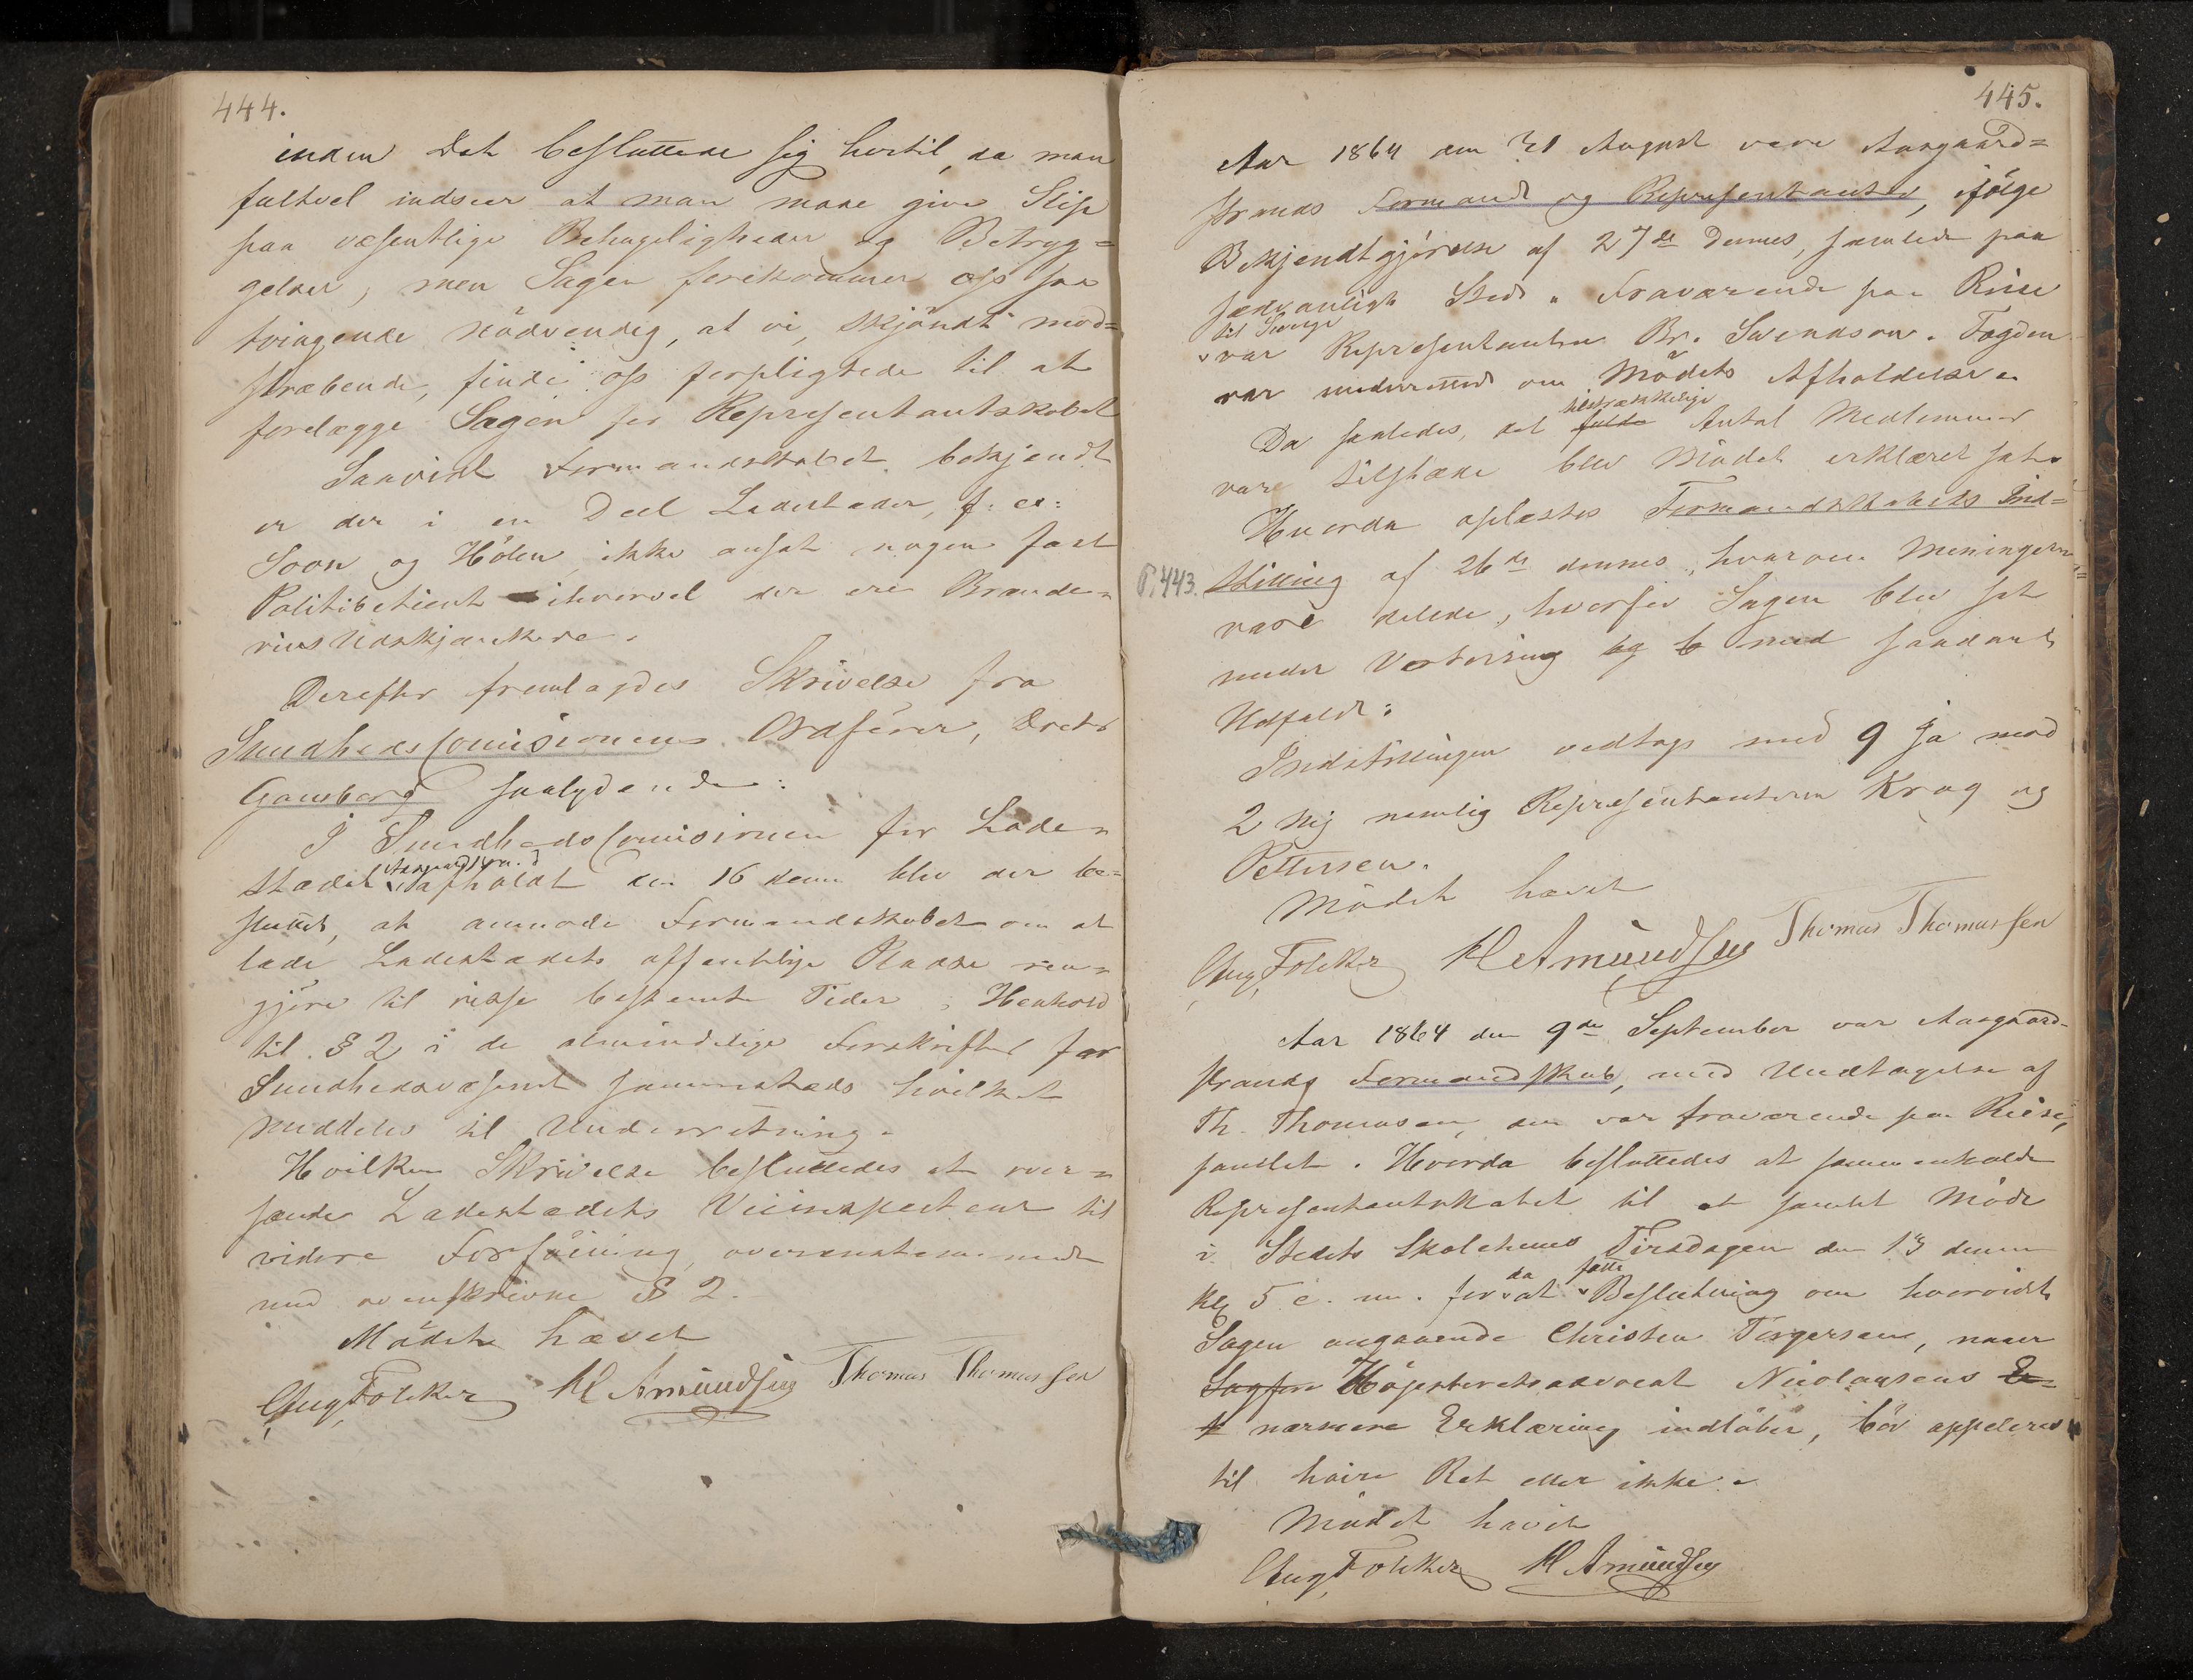 444.
inden Det besluttede sig hertil, da man
fultvel indseer at man maae give Slip
paa væsentlige Behageligheder og Betryg=
gelser, men Sagen forekommer oss saa
tvingende nödvendig, at vi, skjöndt mod=
stræbende, finde oss forpligtede til at
forelægge Sagen for Repræsentantskabet
Saavidt Formandskabet bekjendt
er der i en Deel Ladesteder, f. ex:
Soon og Hölen ikke ansat nogen fast
Politibetient ihvorvel der ere Brænde=
viins Udskjænkere.
Derefter fremlagdes Skrivelse fra
Sundhedscomisionens Ordförer, Doctor
Gamborg saalydende:
I Sundhedscomisionen for Lade=
Aasgaardstrand
stædet afholdt den 16 denne blev der be=
sluttet, at anmode Formandskabet om at
lade Ladestædets offentlige Pladse ren=
gjöre til visse bestemte Tider i Henhold
til § 2 i de almindelige Forskrifter for
Sundhedsvæsenet sammesteds hvilket
meddeles til Underretning.
Hvilken Skrivelse besluttedes at over=
sende Ladestædets Veiinspecteur til
videre Forföining, overensstemmende
med ovenskrevne § 2.
Mödet hævet
Chrs Folcker H Amundsen Thomas Thomassen
445.
Aar 1864 den 31 August vare Aasgaard=
strands Formænd og Repræsentanter, ifölge
Bekjendtgjörelse af 27de Dennes, samlede paa
sædvanligt Sted. Fraværende paa Reise
til Sverige
var Repræsentanten Br. Svendsen. Fogden
var underrettet om Mödets Afholdelse.
tilstrækkelige
Da saaledes, det fulde Antal Medlemmer
vare tilstæde blev Mödet erklæret sat.
Hvorda oplæstes Formandskabets Ind=
P. 443. stilling af 26de dennes, hvorom Meningerne
vare delede, hvorfor Sagen blev sat
under Votering og b med saadant
Udfald:
Indstillingen vedtags med 9 ja mod
2 nej nemlig Repræsentanterne Krog og
Pettersen.
Mödet hævet
Chrs Folcker H Amundsen Thomas Thomassen
Aar 1864 den 9de September var Aasgaard=
strands Formandskab, med Undtagelse af
Th. Thomassen, der var fraværende paa Reise,
samlet. Hvorda besluttedes at sammenkalde
Repræsentantskabet til at samlet Möde
i Stedets Skolehuus Tirsdagen den 13 dennes
da fatte
Kl 5 e. m. for at Beslutning om hvorvidt
Sagen angaaende Christen Torgersen, naar
Sagfør Höjesteretsadvocat Nicolaysens Er=
k nærmere Erklæring indlöber, bör appeleres
til höire Ret eller ikke.
Mödet hævet
Chrs Folcker H Amundsen